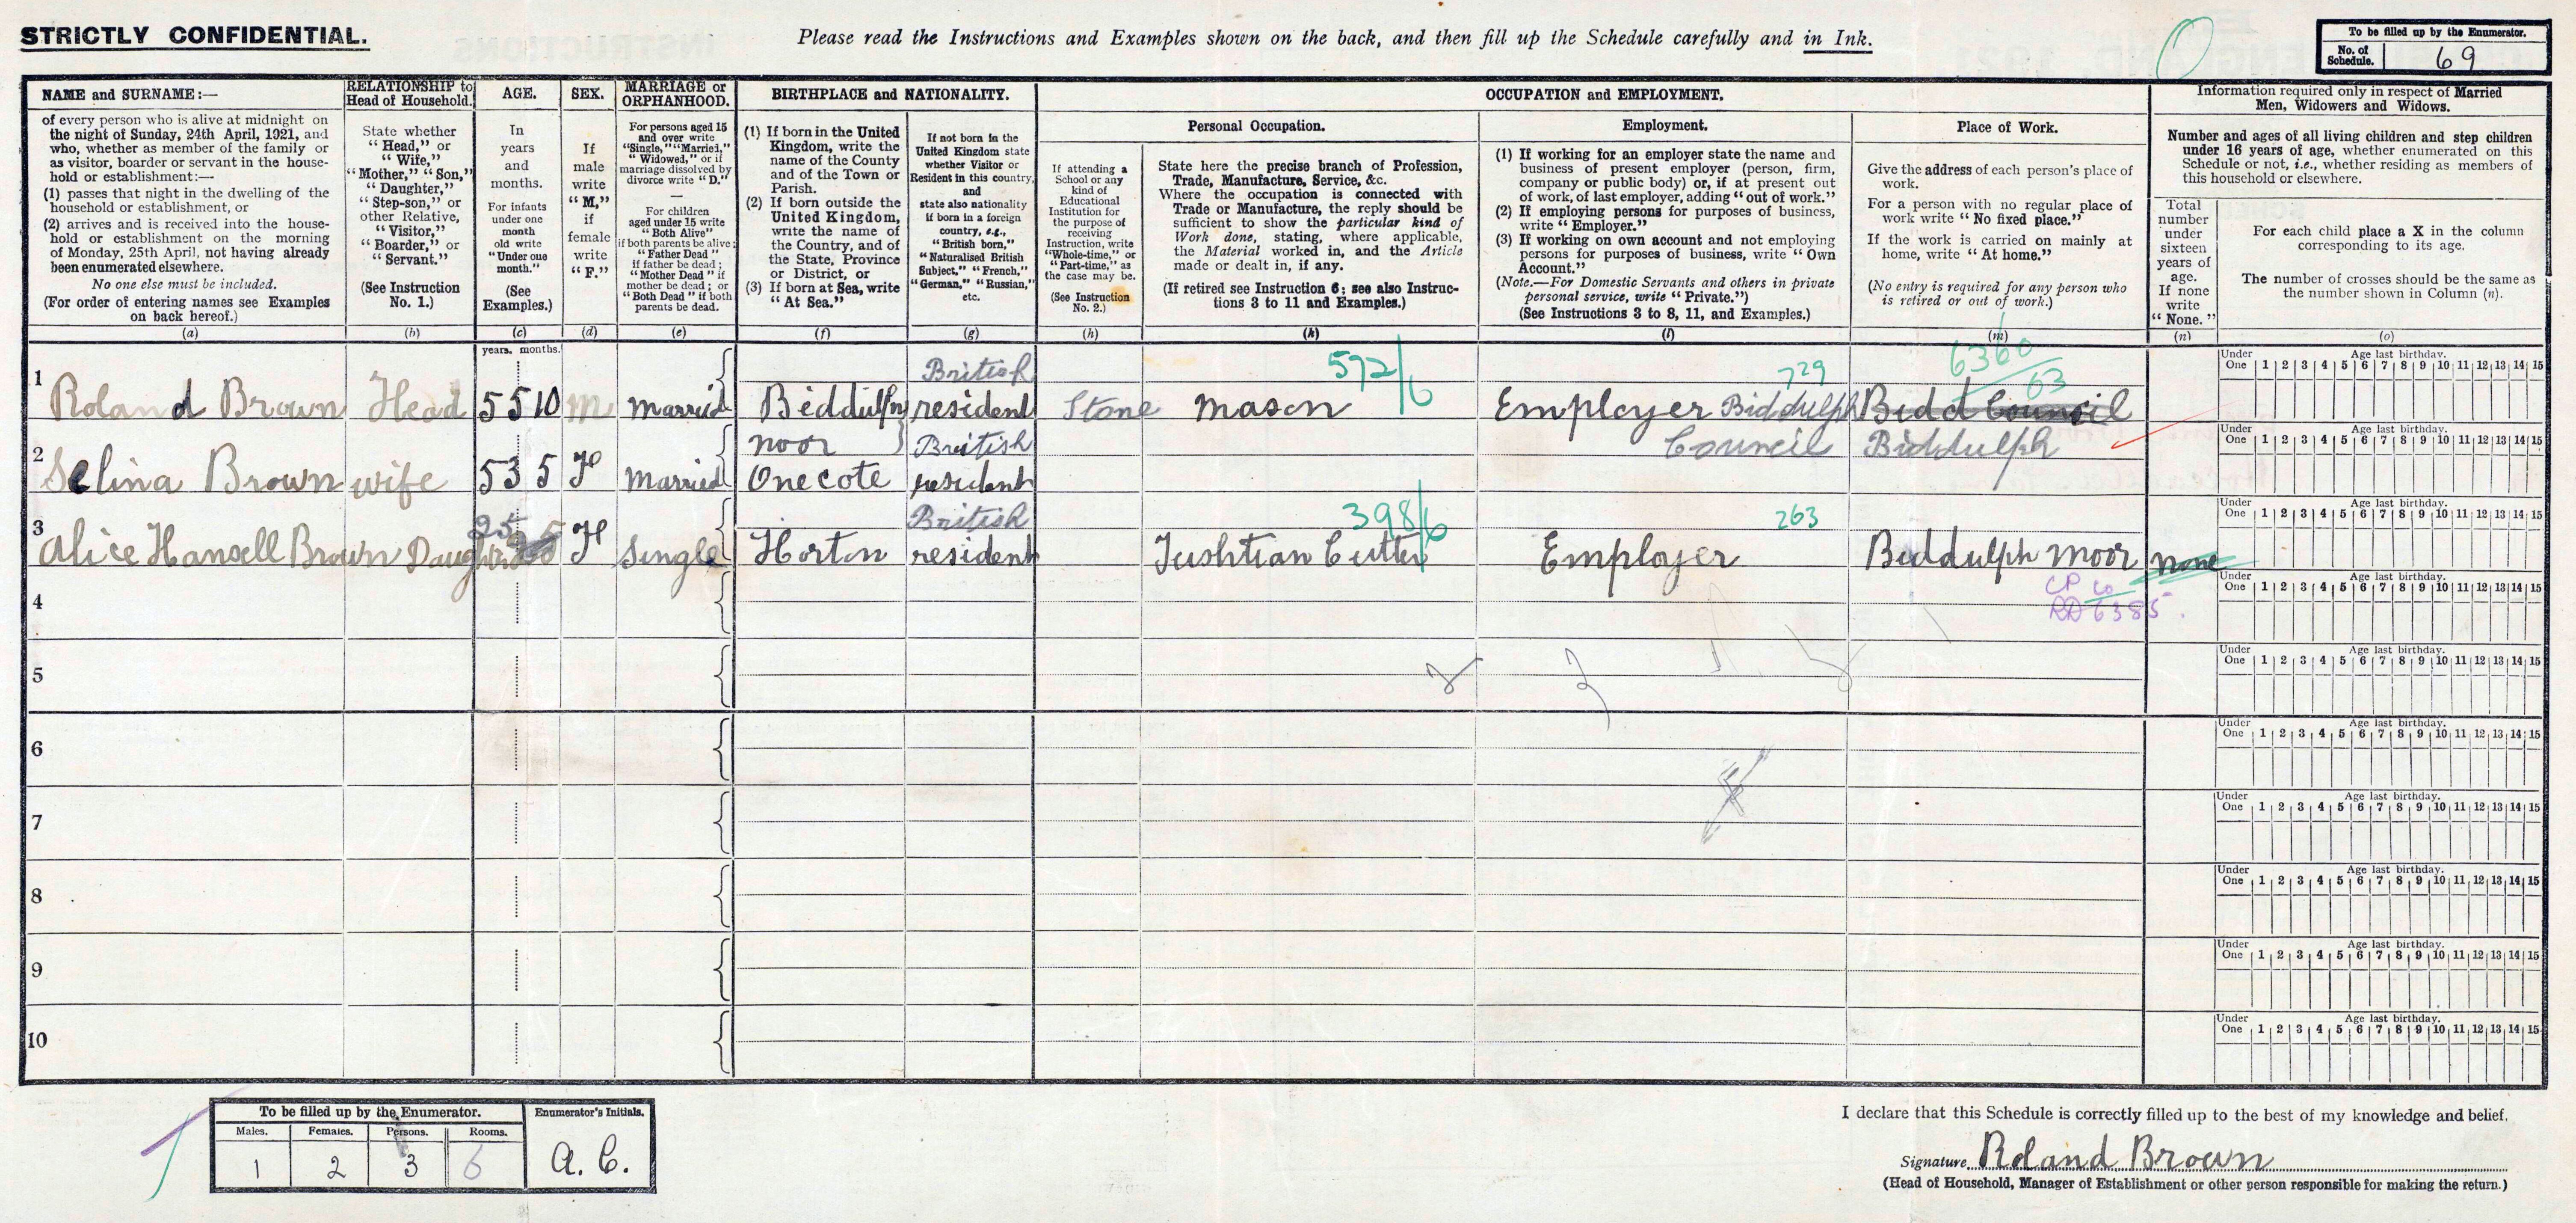 STRICTLY CONFIDENTIAL.
Please read the Instructions and Examples shown on the back, and then fill up the Schedule carefully and in Ink.
To be filled up by the Enumerator.
No. of Schedule. 69
NAME and SURNAME:—
of every person who is alive at midnight on
the night of Sunday, 24th April, 1921, and
who, whether as member of the family or
as visitor, boarder or servant in the house-
hold or establishment:—
(1) passes that night in the dwelling of the
household or establishment, or
(2) arrives and is received into the house-
hold or establishment on the morning
of Monday, 25th April, not having already
been enumerated elsewhere.
No one else must be included.
(For order of entering names see Examples
on back hereof.)
(a)
RELATIONSHIP to
Head of Household.
State whether
"Head," or
"Wife,"
"Mother," "Son,"
"Daughter,"
"Step-son," or
other Relative,
"Visitor,"
"Boarder," or
"Servant."
(See Instruction
No. 1.)
(b)
AGE.
In
years
and
months.
For infants
under one
month
old write
"Under one
month."
(See
Examples.)
(c)
SEX.
If
male
write
"M,"
if
female
write
"F."
(d)
MARRIAGE or
ORPHANHOOD.
For persons aged 15
and over write
"Single," "Married,"
"Widowed," or if
marriage dissolved by
divorce write "D."
—
For children
aged under 15 write
"Both Alive"
if both parents be alive;
"Father Dead"
if father be dead;
"Mother Dead" if
mother be dead; or
"Both Dead" if both
parents be dead.
(e)
BIRTHPLACE and NATIONALITY.
(1) If born in the United
Kingdom, write the
name of the County
and of the Town or
Parish.
(2) If born outside the
United Kingdom,
write the name of
the Country, and of
the State, Province
or District, or
(3) If born at Sea, write
"At Sea."
(f)
If not born in the
United Kingdom state
whether Visitor or
Resident in this country,
and
state also nationality
if born in a foreign
country, e.g.,
"British born,"
"Naturalised British
Subject," "French,"
"German," "Russian,"
etc.
(g)
OCCUPATION and EMPLOYMENT.
Personal Occupation.
If attending a
School or any
kind of
Educational
Institution for
the purpose of
receiving
Instruction, write
"Whole-time," or
"Part-time," as
the case may be.
(See Instruction
No. 2.)
(h)
State here the precise branch of Profession,
Trade, Manufacture, Service, &c.
Where the occupation is connected with
Trade or Manufacture, the reply should be
sufficient to show the particular kind of
Work done, stating, where applicable,
the Material worked in, and the Article
made or dealt in, if any.
(If retired see Instruction 6; see also Instruc-
tions 3 to 11 and Examples.)
(k)
Employment.
(1) If working for an employer state the name and
business of present employer (person, firm,
company or public body) or, if at present out
of work, of last employer, adding "out of work."
(2) If employing persons for purposes of business,
write "Employer."
(3) If working on own account and not employing
persons for purposes of business, write "Own
Account."
(Note.—For Domestic Servants and others in private
personal service, write "Private.")
(See Instructions 3 to 8, 11, and Examples.)
(l)
Place of Work.
Give the address of each person's place of
work.
For a person with no regular place of
work write "No fixed place."
If the work is carried on mainly at
home, write "At home."
(No entry is required for any person who
is retired or out of work.)
(m)
Information required only in respect of Married
Men, Widowers and Widows.
Number and ages of all living children and step children
under 16 years of age, whether enumerated on this
Schedule or not, i.e., whether residing as members of
this household or elsewhere.
Total
number
under
sixteen
years of
age.
If none
write
"None."
(n)
For each child place a X in the column
corresponding to its age.
The number of crosses should be the same as
the number shown in Column (n).
(o)
years. months.
British 572/6 729 6360/63
1 Roland Brown Head 55 10 M Married Biddulph resident Stone Mason Employer Biddulph Bidd Council
moor British Council Biddulph
2 Selina Brown wife 53 5 F Married Onecote resident
British 398/6 263
3 Alice Hansell Brown Daughter 25 5 F Single Horton resident Fushtian Cutter Employer Biddulph Moor none
CP 60
RD 6385
4
5
6
7
8
9
10
Under One Age last birthday. 1 2 3 4 5 6 7 8 9 10 11 12 13 14 15
Under One Age last birthday. 1 2 3 4 5 6 7 8 9 10 11 12 13 14 15
Under One Age last birthday. 1 2 3 4 5 6 7 8 9 10 11 12 13 14 15
Under One Age last birthday. 1 2 3 4 5 6 7 8 9 10 11 12 13 14 15
Under One Age last birthday. 1 2 3 4 5 6 7 8 9 10 11 12 13 14 15
Under One Age last birthday. 1 2 3 4 5 6 7 8 9 10 11 12 13 14 15
Under One Age last birthday. 1 2 3 4 5 6 7 8 9 10 11 12 13 14 15
Under One Age last birthday. 1 2 3 4 5 6 7 8 9 10 11 12 13 14 15
Under One Age last birthday. 1 2 3 4 5 6 7 8 9 10 11 12 13 14 15
Under One Age last birthday. 1 2 3 4 5 6 7 8 9 10 11 12 13 14 15
To be filled up by the Enumerator.
Males. Females. Persons. Rooms.
1 2 3 6
Enumerator's Initials.
A. C.
I declare that this Schedule is correctly filled up to the best of my knowledge and belief.
Signature Roland Brown
(Head of Household, Manager of Establishment or other person responsible for making the return.)